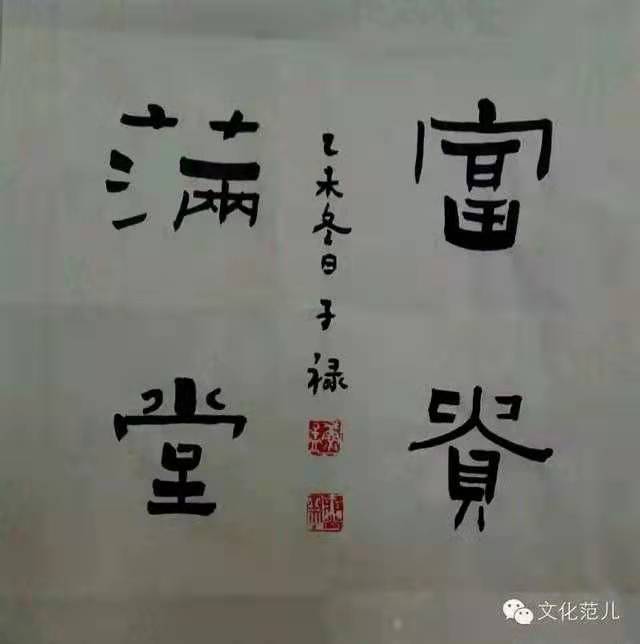 富貴
滿堂
乙未冬日子禄
文化范儿